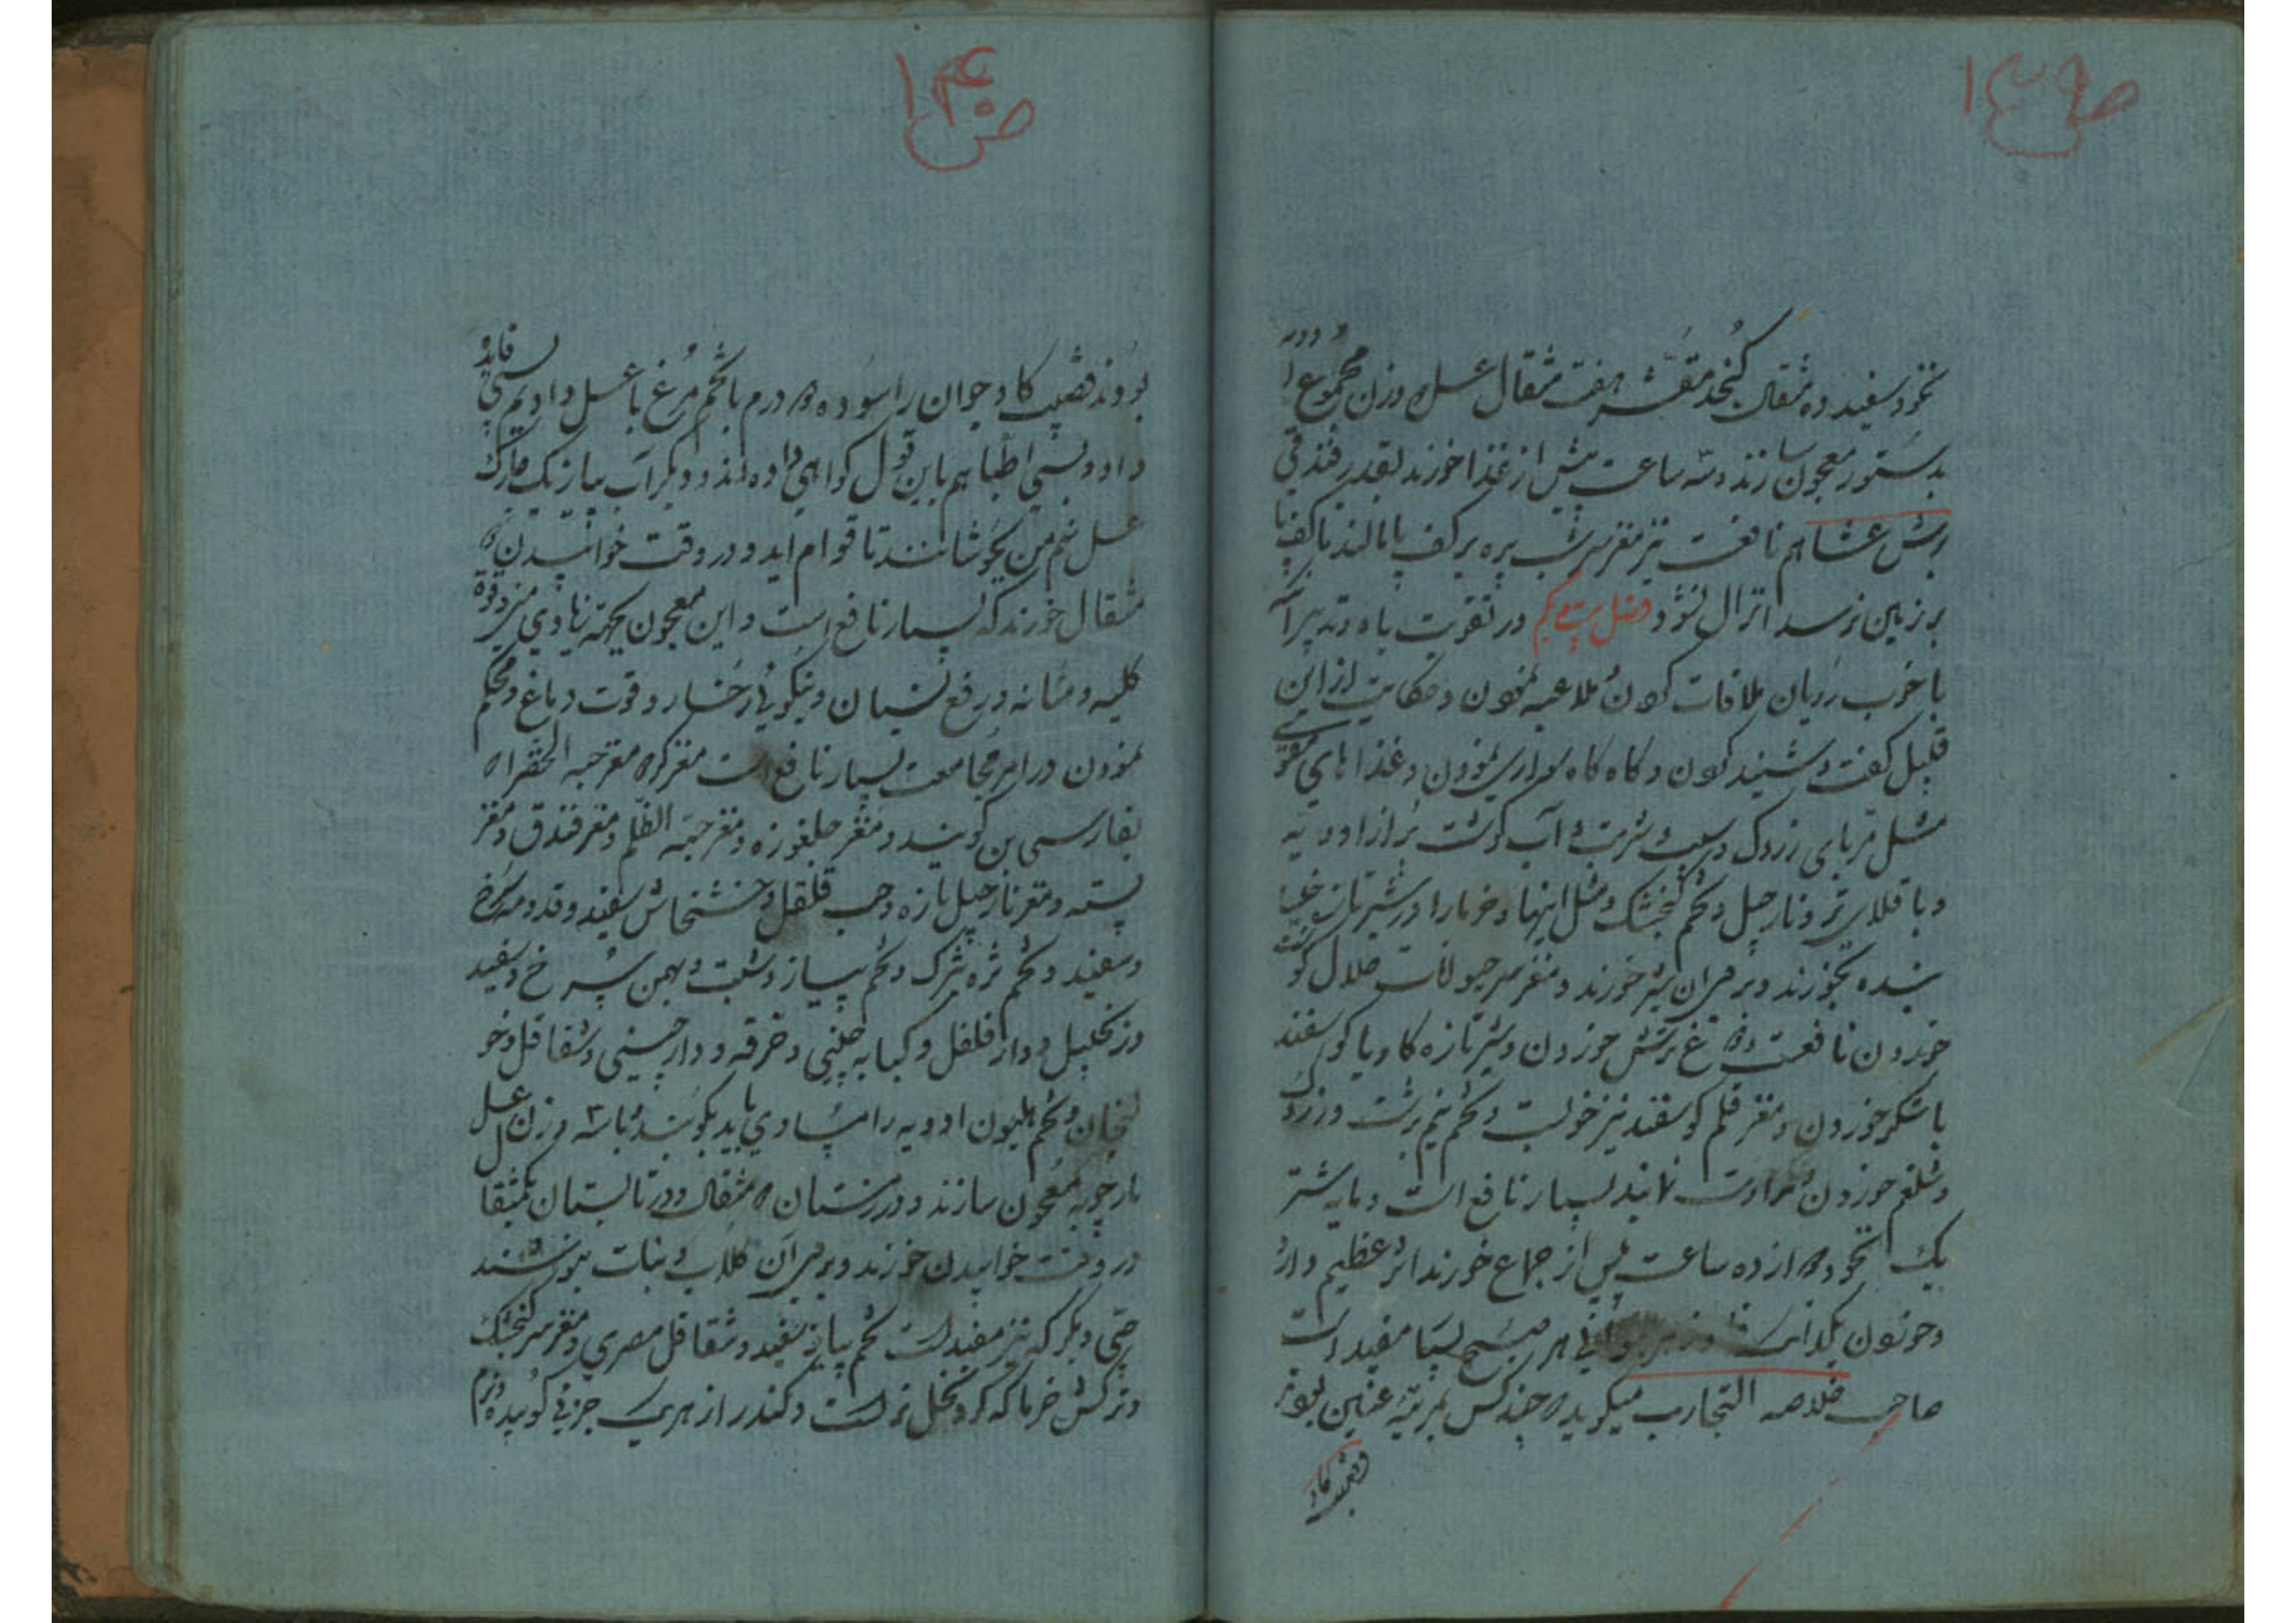 ص ۱۳۹
نخود سفید ده مثقال کنجد مقشر هفت مثقال عسل ۳ وزن مجموع ادویه
بدستور معجون سازند و سه ساعت پیش از غذا خورند بقدر فندقی
هم نافعست نیز مغز سر بره بر کف پا مالند تا کف پا
بر زمین نرسد انزال نشود فصل بیست و یکم در تقویت باه و تدبیر آن
با خوب رویان ملاقات کردن و ملاعبه نمودن و حکایت از این
قبیل گفت و شنید کردن و گاه گاه سواری نمودن و غذاهای مقوی
مثل مربای زردک و سیب و شربت و آب گوشت پر از ادویه
و باقلای تر و نارجیل و تخم گنجشک و مثل اینها و خرما را در شیر تازه خیسا
نیده بخورند و بر سر آن شیر خورند و مغز سر حیوانات حلال گوشت
خوردن نافعست و مرغ برشش خوردن و شیر تازه گاو یا گوسفند
با شکر خوردن و مغز قلم گوسفند نیز خوبست و تخم نیم برشت و زردک
و شلغم خوردن و مداومت نمایند بسیار نافع است و مایه شتر
یک نخود ۳ از ده ساعت پس از جماع خورند اثر عظیم دارد
و خوردن یکدانک هر صبح بسیار مفید است
صاحب خلاصه التجارب میگوید که چند کس بمرتبه عنین بودند
و قضیب گاو
ص ۱۴۰
بودند قضیب گاو جوان را سوده ۳ درم با تخم مرغ با عسل دادیم بسی فایده
داد و بسی اطبا هم باین قول گواهی داده اند و دیگر آب پیاز یک چارک
عسل نیم من بجوشانند تا قوام آید و در وقت خوابیدن ۲
مثقال خورند که بسیار نافع است و این معجون بجهة زیادتی منی و قوة
کلیه و مثانه و رفع نسیان و نیکوئی رخسار و قوت دماغ و محکم
نمودن در امر مجامعت بسیار نافع است مغز گردو مغز حبه الخضرا که
بفارسی بن گویند و مغز جلغوزه و مغز حبه الظلم و مغز فندق و مغز
پسته و مغز نارجیل تازه و حب قلقل و خشخاش سفید و قدومه سرخ
و سفید و تخم تره تیزک و تخم پیاز و شبت و بهمن سرخ و سفید
و زنجبیل و دار فلفل و کبابه چینی و خرفه و دارچینی و شقاقل و خو
لنجان و تخم هلیون ادویه را مساوی باید بکوبند با سه وزن عسل
مارچوبه معجون سازند و در زمستان ۲ مثقال و در تابستان یکمثقال
در وقت خوابیدن خورند و بر سر آن گلاب و نبات بنوشند
حبی دیگر که نیز مفید است تخم پیاز سفید و شقاقل مصری و مغز سر گنجشک
و کش خرما که گرد نخل نر است و کندر از هر یک جزئی کوبیده نرم